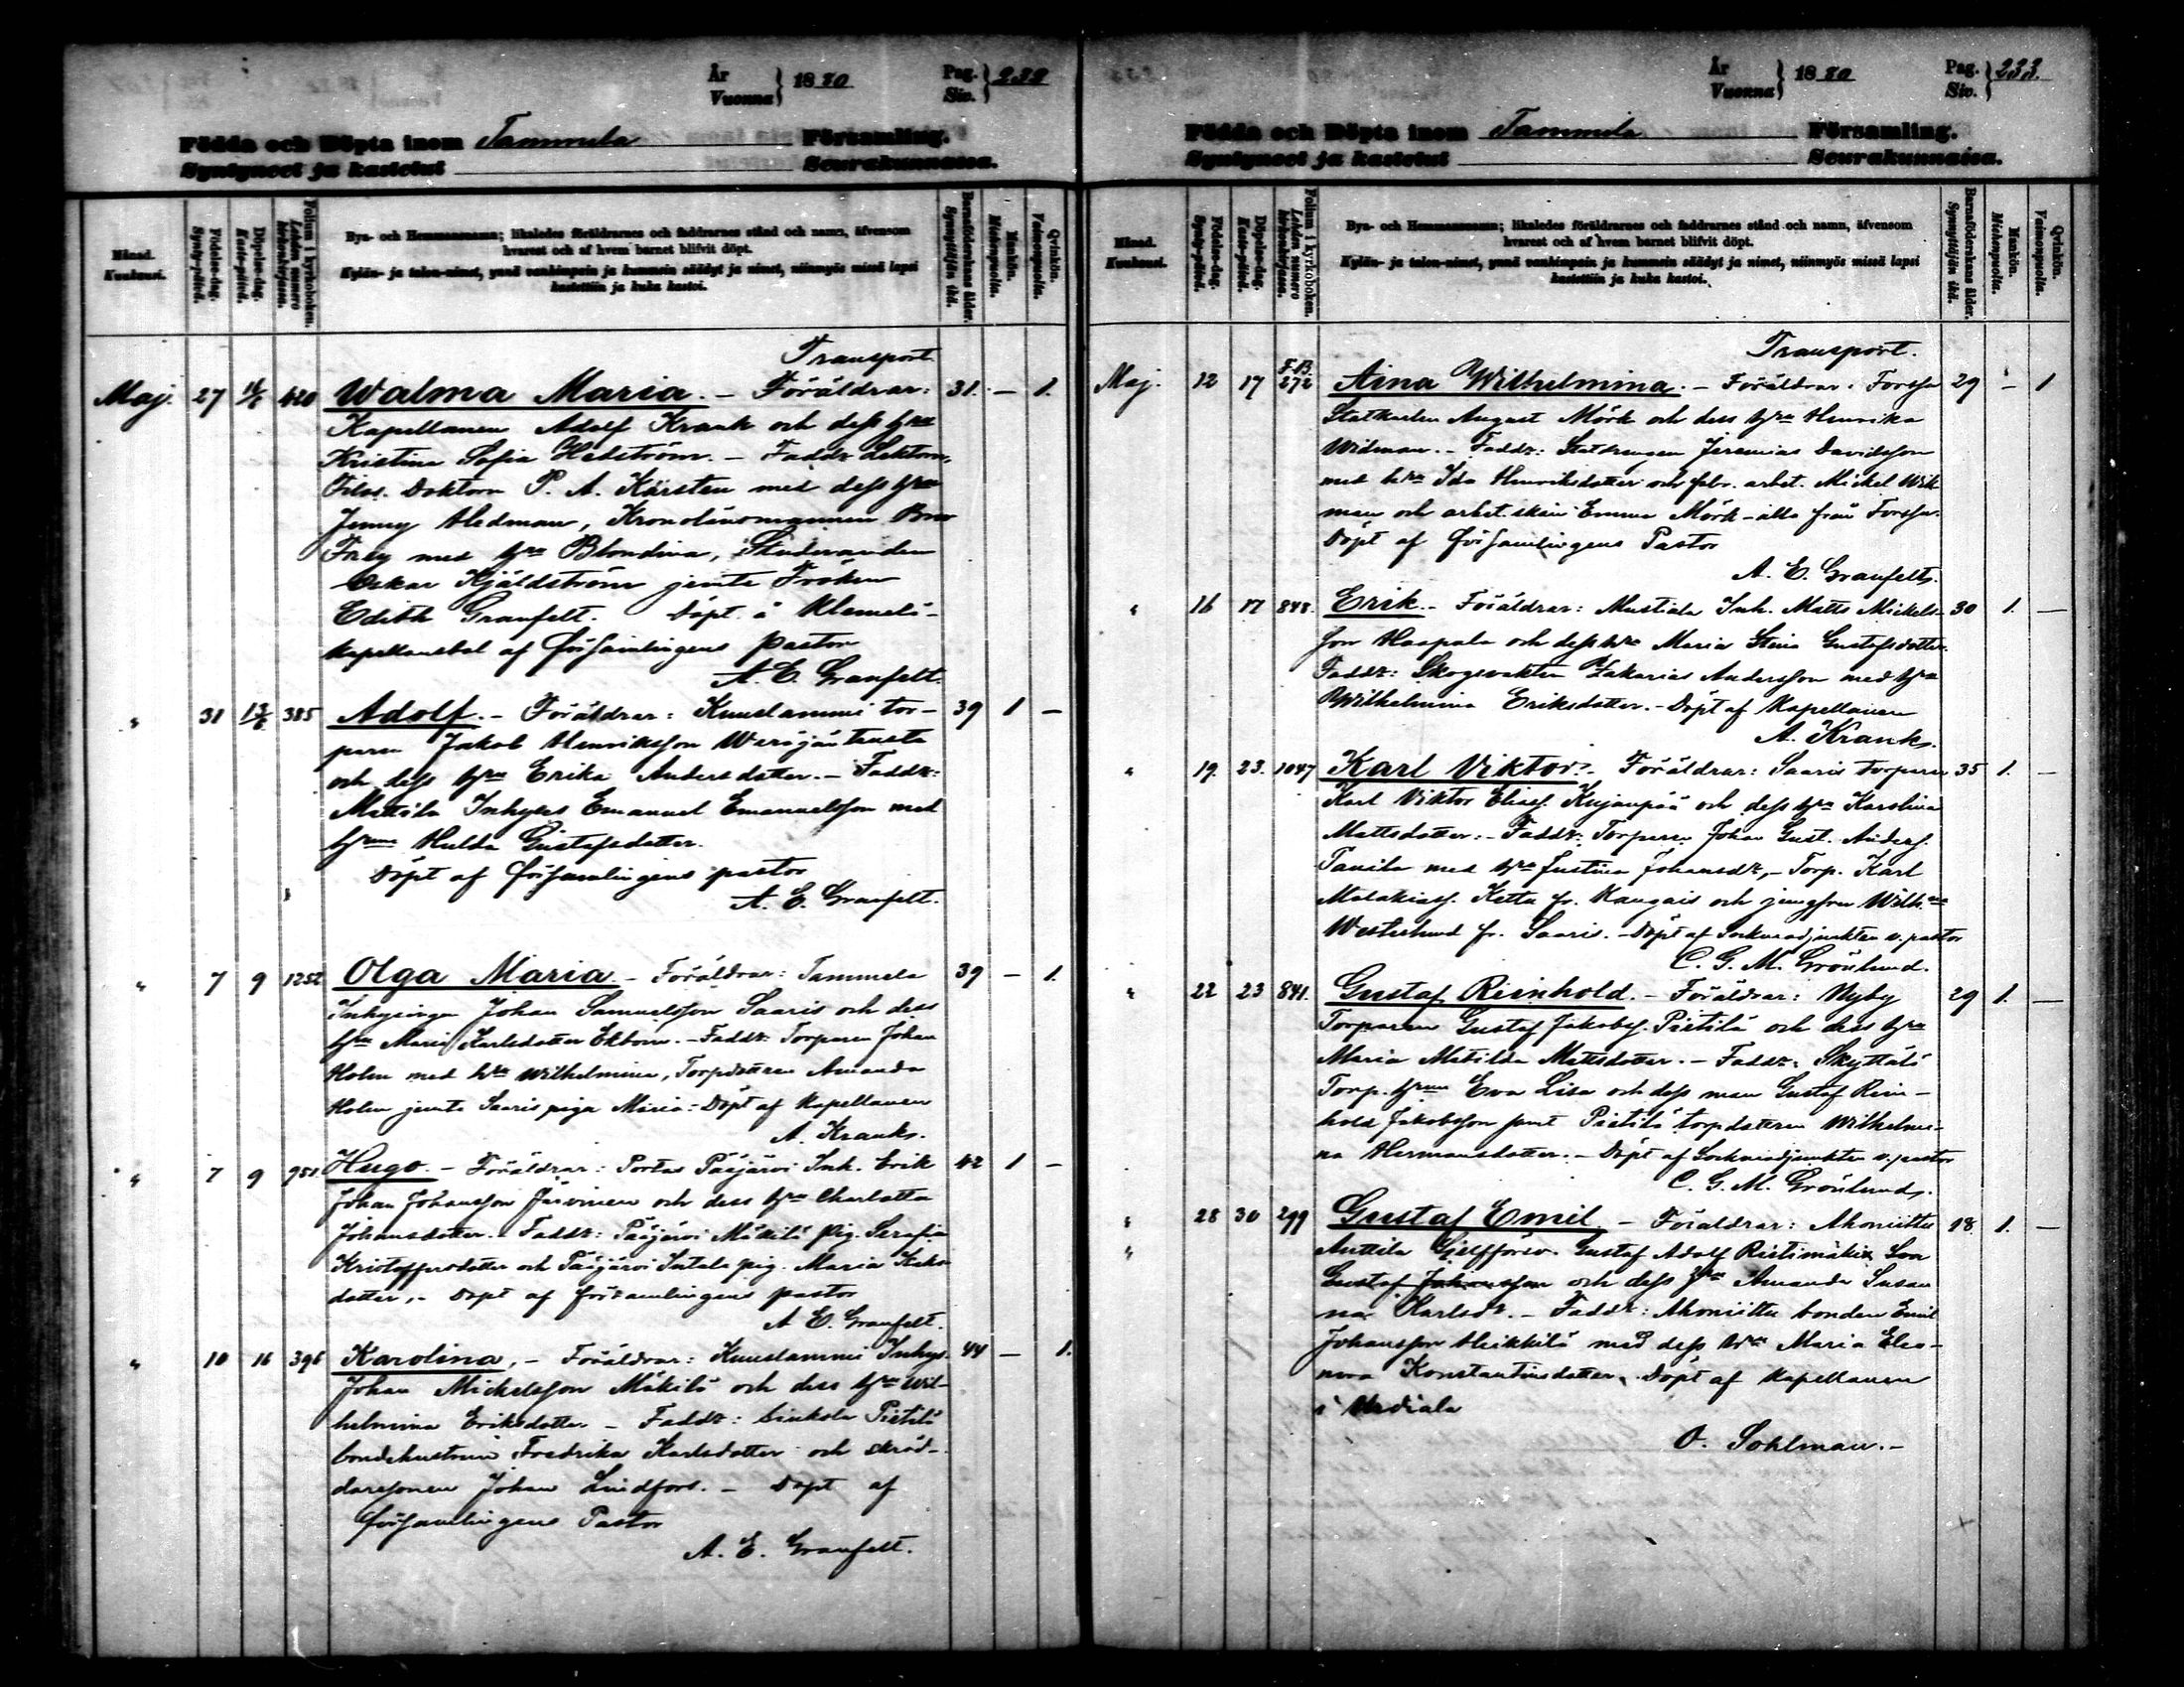 År
Vuonna } 1880
Pag.
Siv. } 232
Födda och Döpta inom Tammela Församling.
Syntyneet ja kastetut Seurakunnassa.
Månad.
Kuukausi.
Födelse-dag.
Synty-päivä.
Döpelse-dag.
Kaste-päivä.
Folium i kyrkoboken.
Lehden numero kirkonkirjassa.
Bya- och Hemmansnamn; likaledes föräldrarnes och faddrarnes stånd och namn, äfvensom
hvarest och af hvem barnet blifvit döpt.
Kylän- ja talon-nimet, ynnä vanhimpain ja kummein säädyt ja nimet, niinmyös missä lapsi
kastettiin ja kuka kastoi.
Barnföderskans ålder.
Synnyttäjän ikä.
Mankön.
Miehenpuolta.
Qvinkön.
Vaimonpuolta.
Transport.
Maj. 27 420 Walma Maria. – Föräldrar: 31. – 1.
Kapellanen Adolf Krank och dess hru
Kristina Sofia Hedström. – Faddr. Lektorn,
Filos. Doktorn P. A. Karsten med dess hru
Jenny Hedman, Kronolänsmannen
Frey med hru Blondina, Studeranden
Oskar Kjäldström jemte Fröken
Edith Granfelt. Döpt å
kapellansbol af församlingens pastor
A. E. Granfelt.
" 31 13/6 385 Adolf. – Föräldrar: Kuuslammi tor- 39 1 –
paren Jakob Henriksson
och dess hru Erika Andersdotter. – Faddr:
Mattila Inhyses Emanuel Emanuelsson med
hrun Hulda Gustafsdotter.
Döpt af församlingens pastor
A. E. Granfelt.
" 7 9 1252 Olga Maria – Föräldrar: Tammela 39 – 1.
Inhysingen Johan Samuelsson Saaris och dess
hru Maria Karlsdotter Ekbom. – Faddr: Torparen Johan
Holm med hru Wilhelmina, Torpdottren Amanda
Holm jemte Saaris piga Maria. – Döpt af Kapellanen
A. Krank.
" 7 9 951. Hugo. – Föräldrar: Portas Pääjärvi Inh. Erik 42 1 –
Johan Johansson Järvinen och dess hru Charlotta
Johansdotter. – Faddr: Pääjärvi Mäkilä pig. Serafia
Kristoffersdotter och Pääjärvi pig. Maria
dotter. – Döpt af församlingens pastor
A. E. Granfelt.
" 10 16 396 Karolina. – Föräldrar: Kuuslammi Inhys. 44 – 1.
Johan Mickelsson Mäkilä och dess hru Wil-
helmina Eriksdotter. – Faddr: Pietilä
bondehustrun Fredrika Karlsdotter och skräd-
daresonen Johan Lindfors. – Döpt af
församlingens Pastor
A. E. Granfelt.
År
Vuonna } 1880
Pag.
Siv. } 233.
Födda och Döpta inom Tammela Församling.
Syntyneet ja kastetut Seurakunnassa.
Månad.
Kuukausi.
Födelse-dag.
Synty-päivä.
Döpelse-dag.
Kaste-päivä.
Folium i kyrkoboken.
Lehden numero kirkonkirjassa.
Bya- och Hemmansnamn; likaledes föräldrarnes och faddrarnes stånd och namn, äfvensom
hvarest och af hvem barnet blifvit döpt.
Kylän- ja talon-nimet, ynnä vanhimpain ja kummein säädyt ja nimet, niinmyös missä lapsi
kastettiin ja kuka kastoi.
Barnföderskans ålder.
Synnyttäjän ikä.
Mankön.
Miehenpuolta.
Qvinkön.
Vaimonpuolta.
Transport.
Maj. 12 17 F.B. 272 Aina Wilhelmina. – Föräldrar: Forssa 29 – 1
Statkarlen August Mörk och dess hru Henrika
Widman. – Faddr: Statdrengen Jeremias Davidsson
med hru Ida Henriksdotter och fabr. arbet. Mickel Wik-
man och arbet.skan Emma Mörk – alla från Forssa.
Döpt af församlingens Pastor
A. E. Granfelt.
" 16 17 848. Erik. – Föräldrar: Mustiala Inh. Matts Mickels- 30 1. –
son Haapala och dess hru Maria Stina Gustafsdotter.
Faddr: Skogsvakten Zakarias Andersson med hru
Wilhelmina Eriksdotter. – Döpt af Kapellanen
A. Krank.
" 19. 23. 1047 Karl Viktor. – Föräldrar: Saaris torparen 35 1. –
Karl Viktor Eliass. Kujanpää och dess hru Karolina
Mattsdotter. – Faddr: Torparen Johan Gust. Anderss.
Tanila med hru Justina Johansdr, – Torp. Karl
Malakiass. Ketta fr. Kaugais och jungfrun Wilh.na
Westerlund fr. Saaris. – Döpt af sockneadjunkten v. pastor
C. G. M. Grönlund.
" 22 23 841. Gustaf Reinhold. – Föräldrar: Nyby 29 1. –
Torparen Gustaf Jakobss. Pietilä och dess hru
Maria Matilda Mattsdotter. – Faddr: Skyttälä
Torp. hrun Eva Lisa och dess man Gustaf Rein-
hold Jakobsson samt Pietilä torpdottren Wilhelmi-
na Hermansdotter. – Döpt af Sockneadjunkten v. pastor
C. G. M. Grönlund.
" 28 30 299 Gustaf Emil. – Föräldrar: Ahoniittu 18. 1. –
" Anttila Gustaf Adolf Ristimäki
Gustaf Johansson och dess hru Amanda Susan
na Karlsdr. – Faddr: Ahoniittu bonden Emil
Johansson Heikkilä med dess hru Maria Eleo-
nora Konstantinsdotter. Döpt af Kapellanen
i Urdiala
O. Sohlman. –